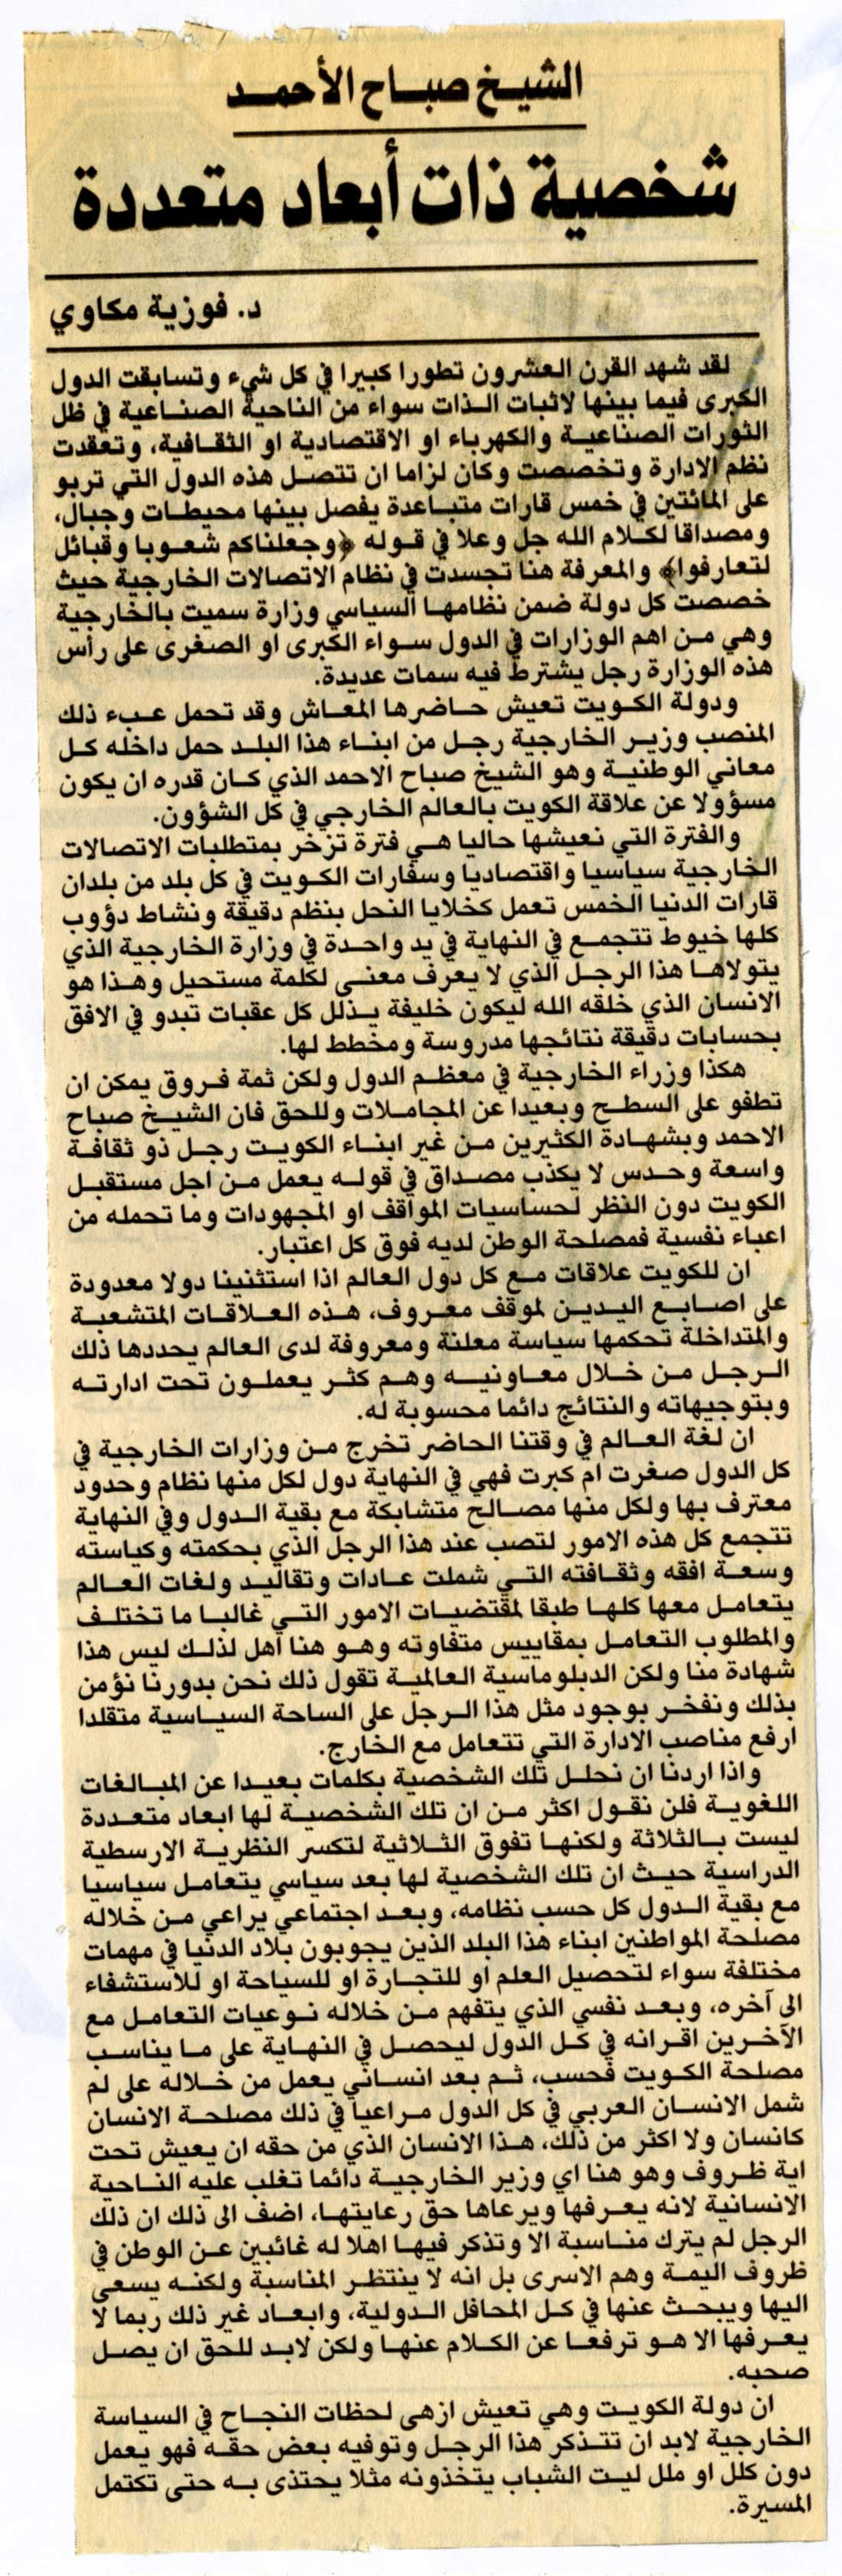 الشيخ صباح الأحمد
شخصية ذات أبعاد متعددة
د. فوزية مكاوي
لقد شهد القرن العشرون تطورا كبيرا في كل شيء وتسابقت الدول
الكبرى فيما بينها لاثبات الذات سواء من الناحية الصناعية في ظل
الثورات الصناعية والكهرباء او الاقتصادية او الثقافية، وتعقدت
نظم الادارة وتخصصت وكان لزاما ان تتصل هذه الدول التي تربو
على المائتين في خمس قارات متباعدة يفصل بينها محيطات وجبال،
ومصداقا لكلام الله جل وعلا في قوله ﴿وجعلناكم شعوبا وقبائل
لتعارفوا﴾ والمعرفة هنا تجسدت في نظام الاتصالات الخارجية حيث
خصصت كل دولة ضمن نظامها السياسي وزارة سميت بالخارجية
وهي من اهم الوزارات في الدول سواء الكبرى او الصغرى على رأس
هذه الوزارة رجل يشترط فيه سمات عديدة.
ودولة الكويت تعيش حاضرها المعاش وقد تحمل عبء ذلك
المنصب وزير الخارجية رجل من ابناء هذا البلد حمل داخله كل
معاني الوطنية وهو الشيخ صباح الاحمد الذي كان قدره ان يكون
مسؤولا عن علاقة الكويت بالعالم الخارجي في كل الشؤون.
والفترة التي نعيشها حاليا هي فترة تزخر بمتطلبات الاتصالات
الخارجية سياسيا واقتصاديا وسفارات الكويت في كل بلد من بلدان
قارات الدنيا الخمس تعمل كخلايا النحل بنظم دقيقة ونشاط دؤوب
كلها خيوط تتجمع في النهاية في يد واحدة في وزارة الخارجية الذي
يتولاها هذا الرجل الذي لا يعرف معنى لكلمة مستحيل وهذا هو
الانسان الذي خلقه الله ليكون خليفة يذلل كل عقبات تبدو في الافق
بحسابات دقيقة نتائجها مدروسة ومخطط لها.
هكذا وزراء الخارجية في معظم الدول ولكن ثمة فروق يمكن ان
تطفو على السطح وبعيدا عن المجاملات وللحق فان الشيخ صباح
الاحمد وبشهادة الكثيرين من غير ابناء الكويت رجل ذو ثقافة
واسعة وحدس لا يكذب مصداق في قوله يعمل من اجل مستقبل
الكويت دون النظر لحساسيات المواقف او المجهودات وما تحمله من
اعباء نفسية فمصلحة الوطن لديه فوق كل اعتبار.
ان للكويت علاقات مع كل دول العالم اذا استثنينا دولا معدودة
على اصابع اليدين لموقف معروف، هذه العلاقات المتشعبة
والمتداخلة تحكمها سياسة معلنة ومعروفة لدى العالم يحددها ذلك
الرجل من خلال معاونيه وهم كثر يعملون تحت ادارته
وبتوجيهاته والنتائج دائما محسوبة له.
ان لغة العالم في وقتنا الحاضر تخرج من وزارات الخارجية في
كل الدول صغرت ام كبرت فهي في النهاية دول لكل منها نظام وحدود
معترف بها ولكل منها مصالح متشابكة مع بقية الدول وفي النهاية
تتجمع كل هذه الامور لتصب عند هذا الرجل الذي بحكمته وكياسته
وسعة افقه وثقافته التي شملت عادات وتقاليد ولغات العالم
يتعامل معها كلها طبقا لمقتضيات الامور التي غالبا ما تختلف
والمطلوب التعامل بمقاييس متفاوته وهو هنا اهل لذلك ليس هذا
شهادة منا ولكن الدبلوماسية العالمية تقول ذلك نحن بدورنا نؤمن
بذلك ونفخر بوجود مثل هذا الرجل على الساحة السياسية متقلدا
ارفع مناصب الادارة التي تتعامل مع الخارج.
واذا اردنا ان نحلل تلك الشخصية بكلمات بعيدا عن المبالغات
اللغوية فلن نقول اكثر من ان تلك الشخصية لها ابعاد متعددة
ليست بالثلاثة ولكنها تفوق الثلاثية لتكسر النظرية الارسطية
الدراسية حيث ان تلك الشخصية لها بعد سياسي يتعامل سياسيا
مع بقية الدول كل حسب نظامه، وبعد اجتماعي يراعي من خلاله
مصلحة المواطنين ابناء هذا البلد الذين يجوبون بلاد الدنيا في مهمات
مختلفة سواء لتحصيل العلم او للتجارة او للسياحة او للاستشفاء
الى آخره، وبعد نفسي الذي يتفهم من خلاله نوعيات التعامل مع
الآخرين اقرانه في كل الدول ليحصل في النهاية على ما يناسب
مصلحة الكويت فحسب، ثم بعد انساني يعمل من خلاله على لم
شمل الانسان العربي في كل الدول مراعيا في ذلك مصلحة الانسان
كانسان ولا اكثر من ذلك، هذا الانسان الذي من حقه ان يعيش تحت
اية ظروف وهو هنا اي وزير الخارجية دائما تغلب عليه الناحية
الانسانية لانه يعرفها ويرعاها حق رعايتها، اضف الى ذلك ان ذلك
الرجل لم يترك مناسبة الا وتذكر فيها اهلا له غائبين عن الوطن في
ظروف اليمة وهم الاسرى بل انه لا ينتظر المناسبة ولكنه يسعى
اليها ويبحث عنها في كل المحافل الدولية، وابعاد غير ذلك ربما لا
يعرفها الا هو ترفعا عن الكلام عنها ولكن لابد للحق ان يصل
صحبه.
ان دولة الكويت وهي تعيش ازهى لحظات النجاح في السياسة
الخارجية لابد ان تتذكر هذا الرجل وتوفيه بعض حقه فهو يعمل
دون كلل او ملل ليت الشباب يتخذونه مثلا يحتذى به حتى تكتمل
المسيرة.